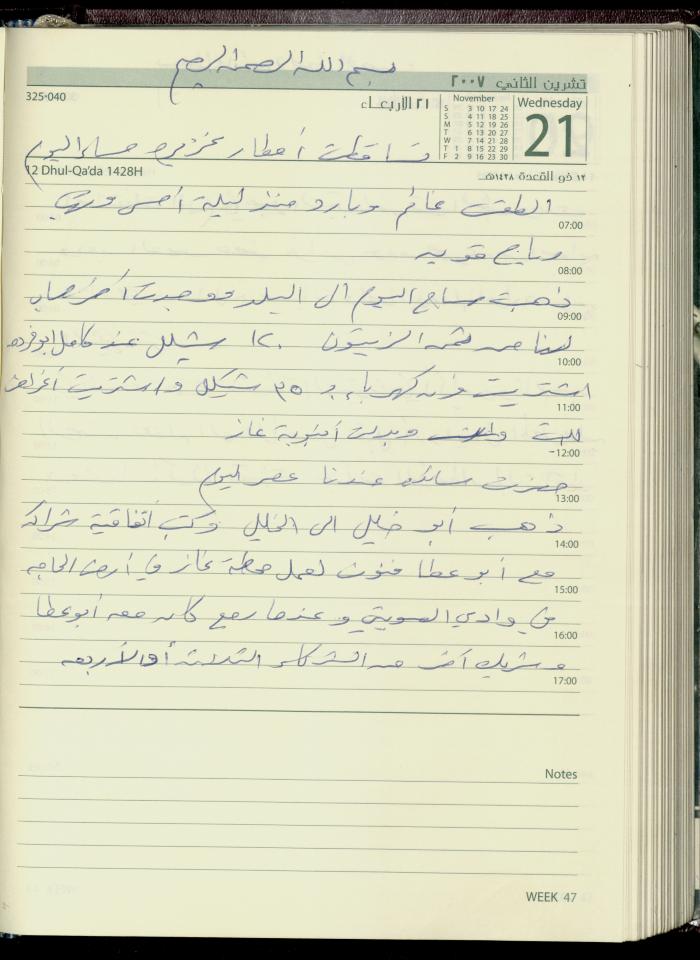 بسم الله الرحمن الرحيم
تشرين الثاني ٢٠٠٧
325-040
٢١ الأربعـاء
November
Wednesday
21
S 3 10 17 24
S 4 11 18 25
M 5 12 19 26
T 6 13 20 27
W 7 14 21 28
T 1 8 15 22 29
F 2 9 16 23 30
تساقطت أمطار غزيرة مساء اليوم
12 Dhul-Qa'da 1428H
١٢ ذو القعدة ١٤٢٨هـ
الطقس غائم وبارد منذ ليلة أمس وهبت
07:00
رياح قوية
08:00
ذهبت صباح اليوم الى البلد ووجدت
09:00
لنا من ثمن الزيتون ١٢٠ شيكل عند كامل ابو فرده
10:00
اشتريت فرن كهرباء بـ ٣٥ شيكل واشتريت
11:00
للبيت وبدلت أنبوبة غاز
12:00
عندنا عصر اليوم
13:00
ذهب أبو خليل الى الخليل وكتب اتفاقية شراكة
14:00
مع أبو عطا فنون لعمل محطة غاز في أرض الحاجه
15:00
في وادي السويتي وعندما رجع كان معه أبو عطا
16:00
وشريك آخر من الشركاء الثلاثة أو الأربعة
17:00
Notes
WEEK 47